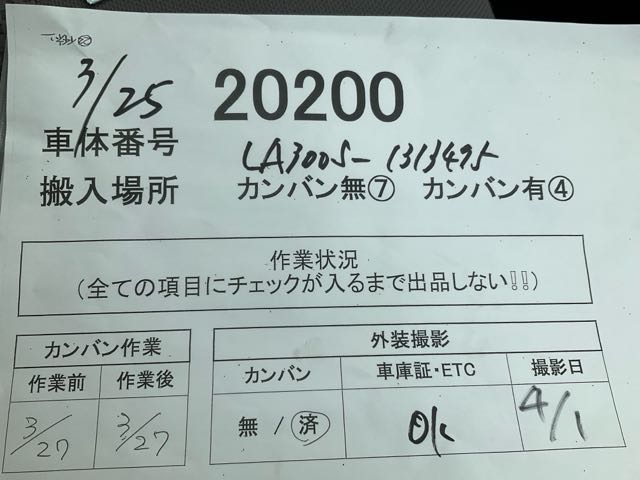 3/25
20200
車体番号 LA300S-1313495
搬入場所 カンバン無⑦ カンバン有④
作業状況
(全ての項目にチェックが入るまで出品しない!!)
カンバン作業
作業前 作業後
3/27 3/27
外装撮影
カンバン 車庫証・ETC 撮影日
無 / 済 OK 4/1